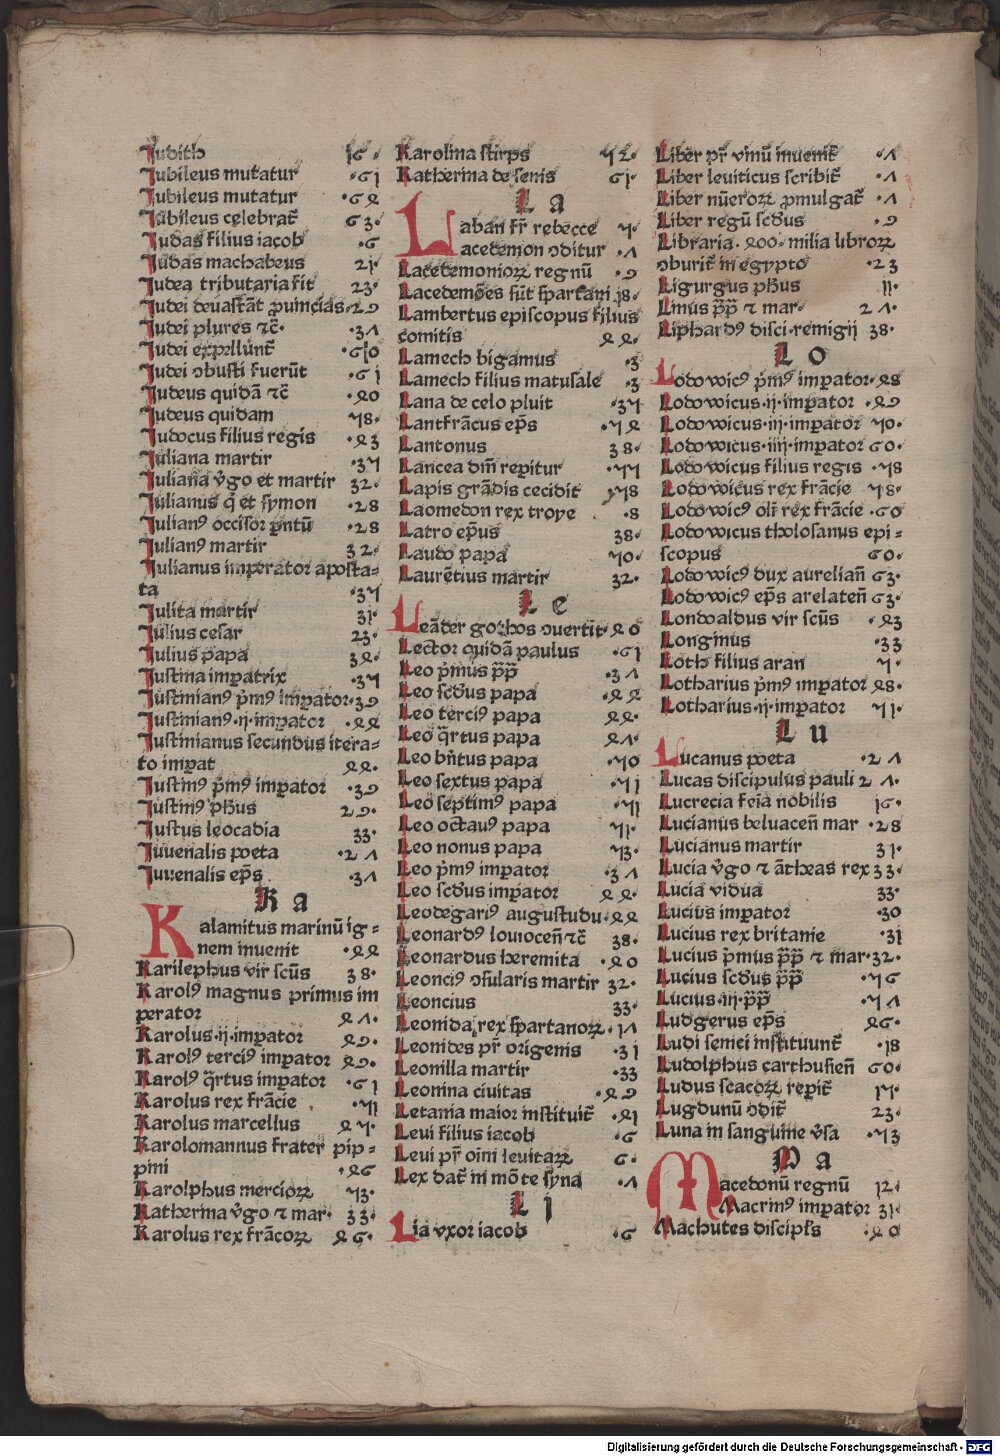 Judith 16·
Jubileus mutatur ·61
Jubileus mutatur ·62
Jubileus celebrat̄ 63·
Judas filius iacob ·6
Judas machabeus 21·
Judea tributaria fit 23·
Judei deuastāt ꝓuincias·29
Judei plures ⁊c̄· ·31
Judei expellunt̄ ·60
Judei ↄbusti fuerūt ·61
Judeus quidā ⁊c̄ ·40
Judeus quidam 48·
Judocus filius regis ·43
Juliana martir ·37
Juliana v̄go et martir 32·
Julianus q̄ et symon ·28
Julianꝰ occisor pntū ·28
Julianꝰ martir 32·
Julianus imperator aposta⸗
ta ·37
Julita martir 31·
Julius cesar 23·
Julius papa 34·
Justina impatrix ·37
Justinianꝰ p̄mꝰ impator·39
Justinianꝰ·ij·impator ·44
Justinianus secundus itera⸗
to impat 44·
Justinꝰ p̄mꝰ impator ·39
Justinꝰ ph̄us 29·
Justus leocadia 33·
Juuenalis poeta ·21
Juuenalis ep̄s ·31
Ka
Kalamitus marinū ig⸗
nem inuenit ·44
Karilephus vir sc̄us 38·
Karolꝰ magnus primus im
perator 41·
Karolus·ij·impator 49·
Karolꝰ terciꝰ impator 49·
Karolꝰ q̄rtus impator ·61
Karolus rex frācie ·71
Karolus marcellus 47·
Karolomannus frater pip⸗
pini ·46
Karolphus merciorꝝ 73·
Katherina v̄go ⁊ mar· 33·
Karolus rex frācorꝝ 46·
Karolina stirps 72·
Katherina de senis 61·
La
Laban fr̄ rebecce 7·
Lacedemon ↄditur ·1
Lacedemoniorꝝ regnū ·9
Lacedemōes sūt spartani 18·
Lambertus episcopus filius
comitis 44·
Lamech bigamus ·3
Lamech filius matusale ·3
Lana de celo pluit ·37
Lantfrācus ep̄s ·74
Lantonus 38·
Lancea dn̄i repitur ·77
Lapis grādis cecidit 178
Laomedon rex troye ·8
Latro ep̄us 38·
Laudo papa 70·
Laurētius martir 32·
Le
Leāder gothos ↄuertit·40
Lector quidā paulus ·61
Leo p̄mus p̄p̄ ·31
Leo sc̄dus papa ·44
Leo terciꝰ papa 44·
Leo q̄rtus papa 41·
Leo bn̄tus papa ·70
Leo sextus papa ·71
Leo septimꝰ papa ·71
Leo octauꝰ papa 71·
Leo nonus papa 73·
Leo p̄mꝰ impator ·31
Leo sc̄dus impator 44·
Leodegariꝰ augustudu·44
Leonardꝰ louiocen̄ ⁊c̄ 38·
Leonardus heremita ·40
Leonciꝰ ↄsularis martir 32·
Leoncius 33·
Leonida rex spartanorꝝ·11
Leonides pr̄ origenis ·31
Leonilla martir ·33
Leonina ciuitas ·49
Letania maior instituit̄ ·41
Leui filius iacob ·6
Leui pr̄ oīm leuitarꝝ 6·
Lex dat̄ in mōte syna ·1
Li
Lia vxor iacob ·6
Liber pr̄ vinū inuenit̄ ·1
Liber leuiticus scribit̄ ·1
Liber nūerorꝝ ꝓmulgat̄ ·1
Liber regū sc̄dus ·9
Libraria·400·milia librorꝝ
ↄburit̄ in egypto ·23
Ligurgus ph̄us 11·
Linus p̄p̄ ⁊ mar· 21·
Liphardꝰ disci·remigij 38·
Lo
Lodowicꝰ p̄mꝰ impator·48
Lodowicus·ij·impator ·49
Lodowicus·iij·impator 70·
Lodowicus·iiij·impator 60·
Lodowicus filius regis ·78
Lodowicus rex frācie 78·
Lodowicꝰ oli rex frācie ·60
Lodowicus tholosanus epi⸗
scopus 60·
Lodowicꝰ dux aurelian̄ 63·
Lodowicꝰ ep̄s arelaten̄ 63·
Londoaldus vir sc̄us ·43
Longinus ·33
Loth filius aran 7·
Lotharius p̄mꝰ impator 48·
Lotharius·ij·impator 71·
Lu
Lucanus poeta ·21
Lucas discipulus pauli 21·
Lucrecia feīa nobilis 16·
Lucianus beluacen̄ mar ·28
Lucianus martir 31·
Lucia v̄go ⁊ ātheas rex 33·
Lucia vidua 33·
Lucius impator ·30
Lucius rex britanie ·31
Lucius p̄mus p̄p̄ ⁊ mar·32·
Lucius sc̄dus p̄p̄ ·76
Lucius·iij·p̄p̄ ·71
Ludgerus ep̄s 46·
Ludi scenici instituunt̄ ·18
Ludolphus carthusien̄ 60·
Ludus scacorꝝ repit̄ 17·
Lugdunū ↄdit̄ 23·
Luna in sanguine v̄sa ·73
Ma
Macedonū regnū 12·
Macrinꝰ impator 31·
Machutes discipl̄s ·40
Digitalisierung gefördert durch die Deutsche Forschungsgemeinschaft - DFG